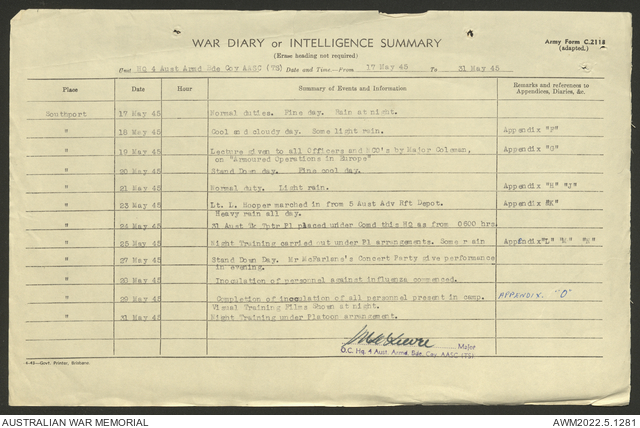 WAR DIARY or INTELLIGENCE SUMMARY
Army Form C.2118
(adapted.)
(Erase heading not required)
Unit HQ 4 Aust Armd Bde Coy AASC (TS) Date and Time—From 17 May 45 To 31 May 45
Place Date Hour Summary of Events and Information Remarks and references to Appendices, Diaries, &c.
Southport 17 May 45 Normal duties. Fine day. Rain at night.
" 18 May 45 Cool and cloudy day. Some light rain. Appendix "F"
" 19 May 45 Lecture given to all Officers and NCO's by Major Coleman, Appendix "G"
on "Armoured Operations in Europe"
" 20 May 45 Stand Down day. Fine cool day.
" 21 May 45 Normal duty. Light rain. Appendix "H" "J"
" 23 May 45 Lt. L. Hooper marched in from 5 Aust Adv Rft Depot. Appendix "K"
Heavy rain all day.
" 24 May 45 31 Aust Tk Tptr Pl placed under Comd this HQ as from 0600 hrs
" 25 May 45 Night Training carried out under Pl arrangements. Some rain Appendix "L" "M" "N"
" 27 May 45 Stand Down Day. Mr McFarlane's Concert Party give performance
in evening.
" 28 May 45 Inoculation of personnel against influenza commenced.
" 29 May 45 Completion of inoculation of all personnel present in camp. APPENDIX. "O"
Visual Training Films Shown at night.
" 31 May 45 Night Training under Platoon arrangement.
Major
O.C. Hq. 4 Aust. Armd. Bde. Coy. AASC (TS)
4-43—Govt. Printer, Brisbane.
AUSTRALIAN WAR MEMORIAL
AWM2022.5.1281